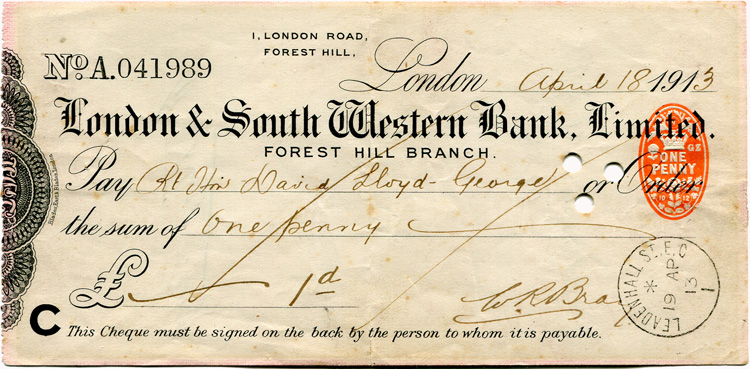 1, LONDON ROAD,
FOREST HILL,
No A.041989
London April 18 1913
London & South Western Bank, Limited.
FOREST HILL BRANCH.
ONE
PENNY
Pay Rt Hon David Lloyd-George or Order
the sum of One penny
£ 1d
W.R.Bray
LEADENHALL ST. E.C
19 AP
13
1
C This Cheque must be signed on the back by the person to whom it is payable.